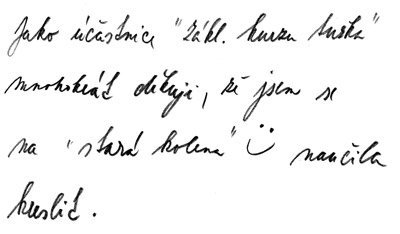 Jako účastnice "zákl. kurzu tuška"
mnohokrát děkuji, že jsem se
na "stará kolena" naučila
kreslit.